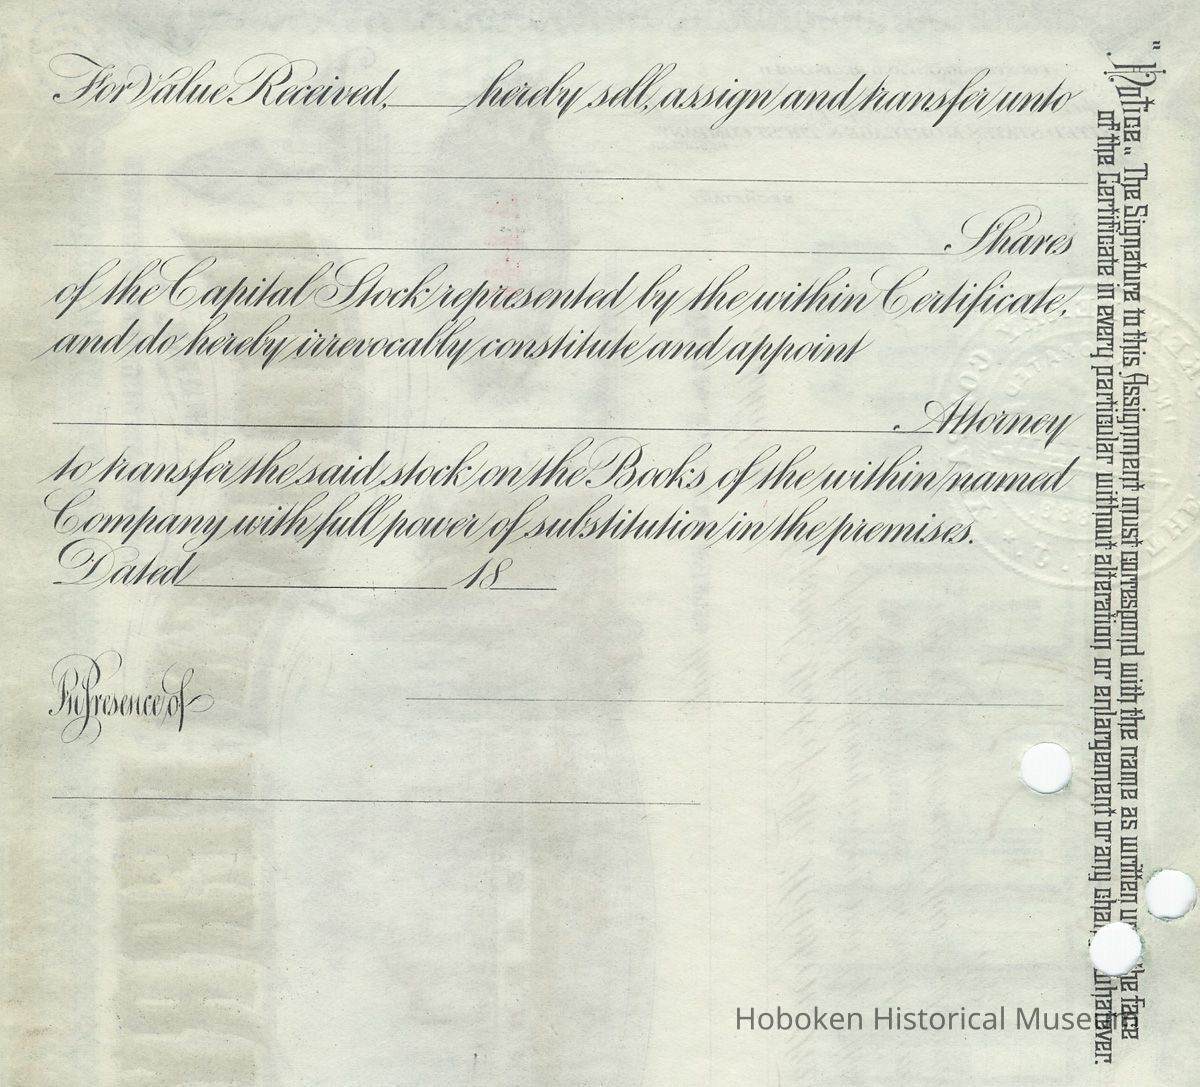 For Value Received, hereby sell, assign and transfer unto
Shares
of the Capital Stock represented by the within Certificate,
and do hereby irrevocably constitute and appoint
Attorney
to transfer the said stock on the Books of the within named
Company with full power of substitution in the premises.
Dated 18
In Presence of
"Notice." The Signature to this Assignment must correspond with the name as written the face
of the Certificate in every particular without alteration or enlargement or any whatever.
Hoboken Historical Museum